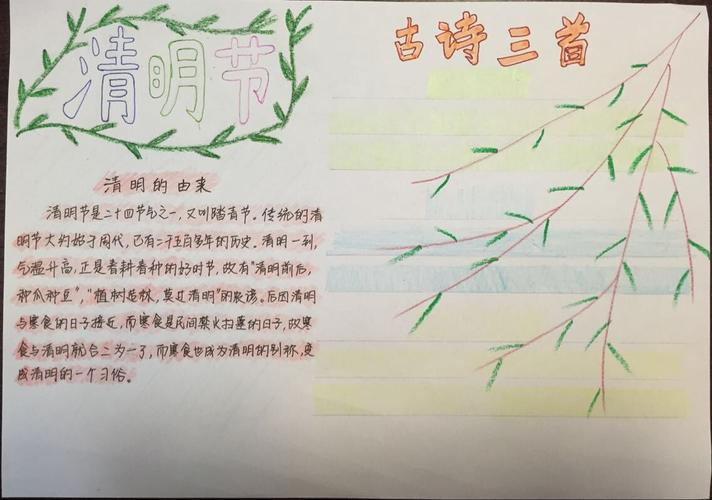 清明节
古诗三首
清明的由来
清明节是二十四节气之一,又叫踏青节。传统的清
明节大约始于周代,已有二千五百多年的历史。清明一到,
气温升高,正是春耕春种的好时节,故有“清明前后,
种瓜种豆”,“植树造林,莫过清明”的农谚。后因清明
与寒食的日子接近,而寒食是民间禁火扫墓的日子,故寒
食与清明就合二为一了,而寒食也成为清明的别称,变
成清明的一个习俗。